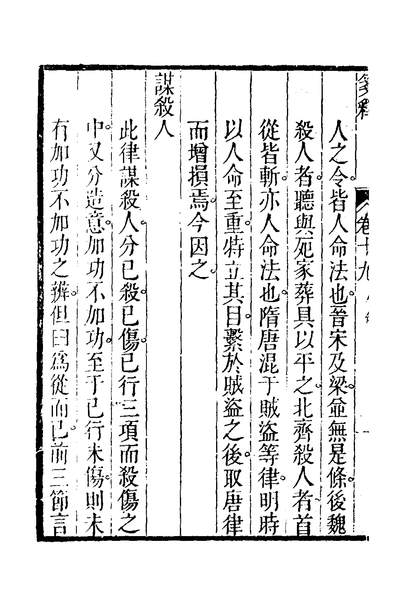 箋釋
卷十九
人之令皆人命法也晉宋及梁並無是條後魏
殺人者聽與死家葬具以平之北齊殺人者首
從皆斬亦人命法也隋唐混于賊盜等律明時
以人命至重特立其目繫於賊盜之後取唐律
而增損焉今因之
謀殺人
此律謀殺人分已殺已傷已行三項而殺傷之
中又分造意加功不加功至于已行未傷則未
有加功不加功之辨但曰為從而已前三節言